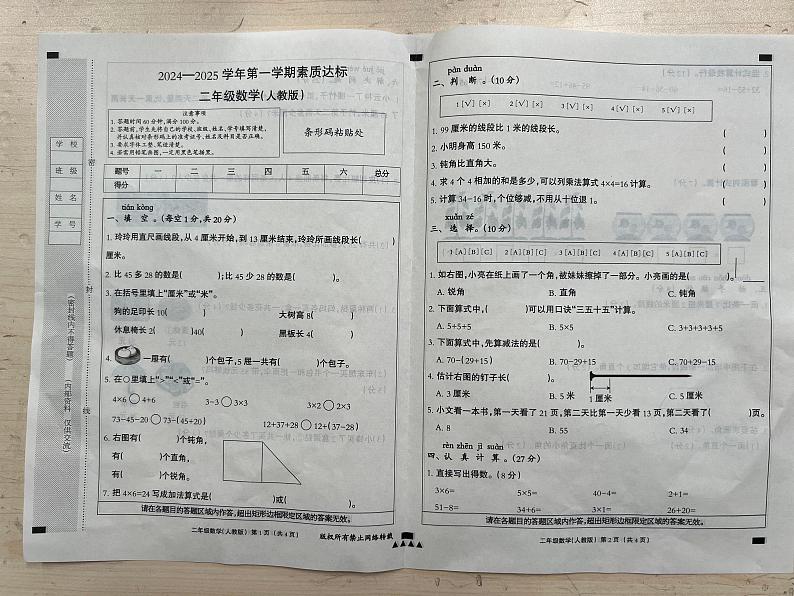 2024—2025 学年第一学期素质达标
二年级数学(人教版)
注意事项
1. 答题时间 60 分钟,满分 100 分。
2. 答题前,学生先将自己的学校、班级、姓名、学号填写清楚,
并认真核对条形码上的准考证号、姓名及科目是否正确。
3. 要求字体工整、笔迹清楚。
4. 若需用铅笔画图,一定用黑色笔描黑。
条形码粘贴处
题号 一 二 三 四 五 六 总分
得分
学 校
班 级
姓 名
学 号
密
封
线
(密封线内不得答题)
(内部资料 仅供交流)
tián kòng
一、填 空。(每空 1 分,共 20 分)
1. 玲玲用直尺画线段,从 4 厘米开始,到 13 厘米结束,玲玲所画线段长( )
厘米。
2. 比 45 多 28 的数是( );比 45 少 28 的数是( )。
3. 在括号里填上“厘米”或“米”。
狗的足印长 10( ) 大树高 8( )
休息椅长 2( )40( ) 黑板长 4( )
4. 一屉有( )个包子,5 屉一共有( )个包子。
5. 在○里填上“>”“<”或“=”。
4×6○4+6 3-3○3×3 3×2○2×3
73-45-20○73-(45+20) 12+37+28○12+(37-28)
6. 右图有( )个钝角,
有( )个直角,
有( )个锐角。
7. 把 4×6=24 写成加法算式是( )或( )。
请在各题目的答题区域内作答,超出矩形边框限定区域的答案无效。
二年级数学(人教版) 第 1 页 (共 4 页)
版权所有禁止网络转载
pàn duàn
二、判 断。(10 分)
1 [√] [×] 2 [√] [×] 3 [√] [×] 4 [√] [×] 5 [√] [×]
1. 99 厘米的线段比 1 米的线段长。 ( )
2. 小明身高 150 米。 ( )
3. 钝角比直角大。 ( )
4. 求 4 个 4 相加的和是多少,可以列乘法算式 4×4=16 计算。 ( )
5. 计算 34-16 时,个位够减,不用从十位退 1。 ( )
xuǎn zé
三、选 择。(10 分)
1 [A] [B] [C] 2 [A] [B] [C] 3 [A] [B] [C] 4 [A] [B] [C] 5 [A] [B] [C]
1. 如右图,小亮在纸上画了一个角,被妹妹擦掉了一部分。小亮画的是( )。
A. 锐角 B. 直角 C. 钝角
2. 下面算式中,( )可以用口诀“三五十五”计算。
A. 5+5+5 B. 5×5 C. 3+3+3+3+5
3. 下面算式中,先算减法的是( )。
A. 70-(29+15) B. 70-29+15 C. 70+29-15
4. 估计右图的钉子长( )。
1厘米
A. 3 厘米 B. 5 米 C. 5 厘米
5. 小文看一本书,第一天看了 21 页,第二天比第一天少看 13 页,第二天看了( )页。
A. 8 B. 55 C. 34
rèn zhēn jì suàn
四、认 真 计 算。(27 分)
1. 直接写出得数。(8 分)
3×6= 5×5= 40-4= 2+1=
51-8= 34+6= 3×1= 26+20=
请在各题目的答题区域内作答,超出矩形边框限定区域的答案无效。
二年级数学(人教版) 第 2 页 (共 4 页)